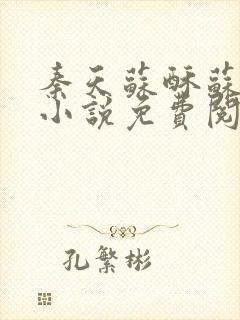 秦天蘇酥蘇
小說免費閱
孔繁彬